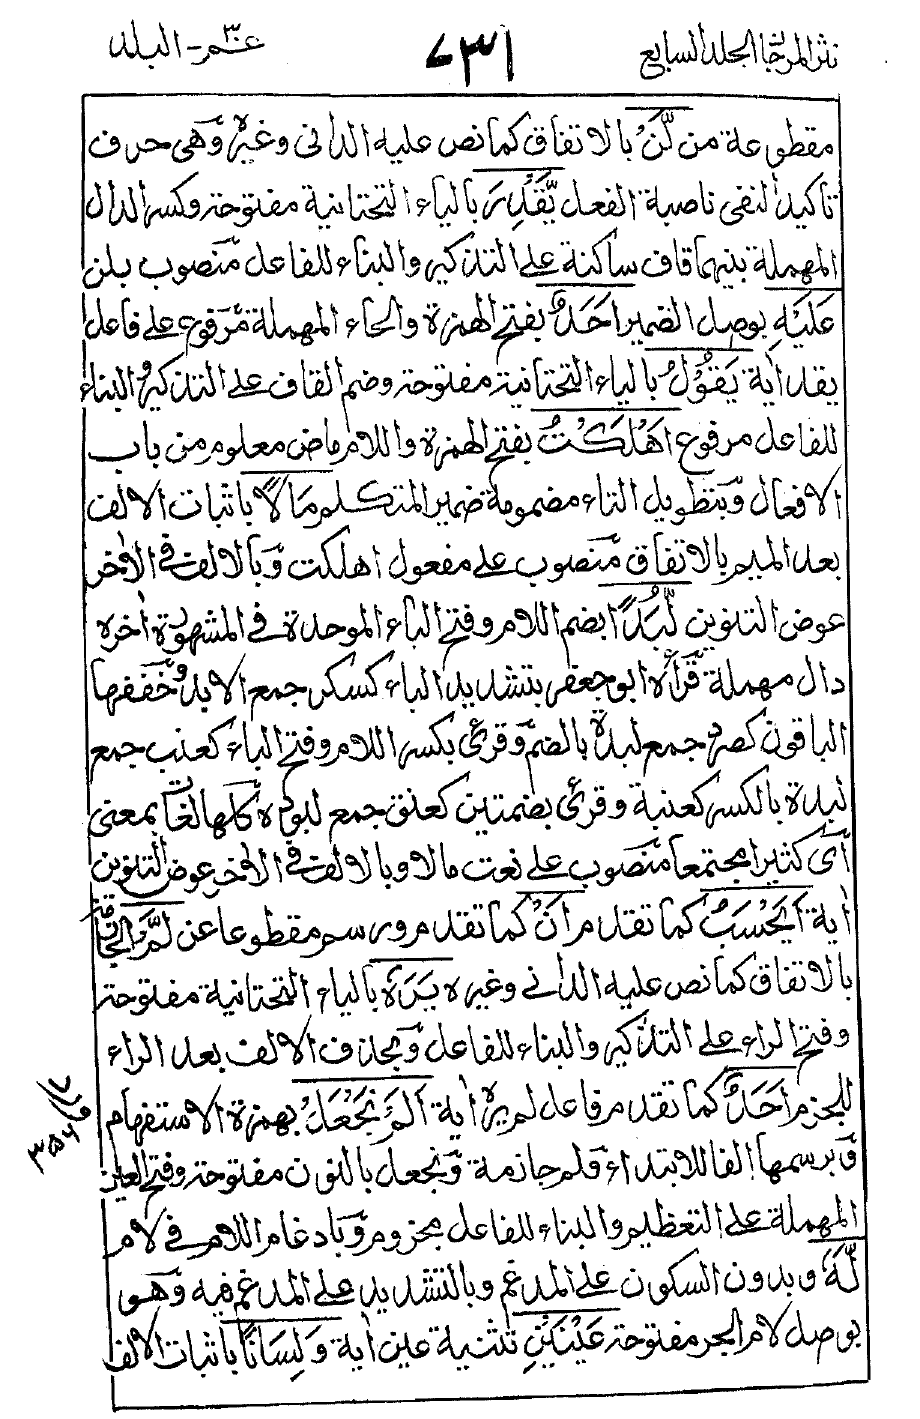 نثر المرجان الجلد السابع
٧٣١
عم - البلد
مقطوعة من لَّنْ بالاتفاق كما نص عليه الداني وغيره وَّهي حرف
تاكيد النفي ناصبة الفعل يَّقْدِرَ بالياء التحتانية مفتوحة وكسر الدال
المهملة بينهما قاف ساكنة على التذكير والبناء للفاعل منصوب بلن
عَلَيْهِ بوصل الضمير اَحَدٌ بفتح الهمزة والحاء المهملة مرفوع على فاعل
يقدر اٰية يَقُوْلُ بالياء التحتانية مفتوحة وضم القاف على التذكير والبناء
للفاعل مرفوع اَهْلَكْتُ بفتح الهمزة واللام ماض معلوم من باب
الافعال وَّبتطويل التاء مضمومة ضمير المتكلم مَالًا باثبات الالف
بعد الميم بالاتفاق مَّنصوب على مفعول اهلكت وَّبالالف في الاٰخر
عوض التنوين لُّبَدًا بضم اللام وفتح الباء الموحدة في المشهورة اٰخره
دال مهملة قَرَأه ابو جعفر بتشديد الباء كسكر جمع لابد وَّخففها
الباقون كصرد جمع لبدة بالضم وَّقرئ بكسر اللام وفتح الباء كعنب جمع
لبدة بالكسر كعنبة وقرئ بضمتين كعنق جمع لبود كلها لغات بمعنى
اَي كثيرا مجتمعا منصوب على نعت مالا وبالالف في الاٰخر عوض التنوين
اٰية اَيَحْسَبُ كما تقدم اَنْ كما تقدم ورسم مقطوعا عن لَّمْ الجازمة
بالاتفاق كما نص عليه الداني وغيره يَرَهٗ بالياء التحتانية مفتوحة
وفتح الراء على التذكير والبناء للفاعل وَّبحذف الالف بعد الراء
للجزم اَحَدٌ كما تقدم فاعل لم يره اٰية اَلَمْ نَجْعَلْ بهمزة الاستفهام
وَّبرسمها الفا للابتداء وَّلم جازمة وَّنجعل بالنون مفتوحة وفتح العين
المهملة على التعظيم والبناء للفاعل مجزوم وَّبادغام اللام في لام
لَّهٗ وبدون السكون على المدغم وبالتشديد على المدغم فيه وَّهو
بوصل لام الجر مفتوحة عَيْنَيْنِ تثنية عين اٰية وَلِسَانًا باثبات الالف